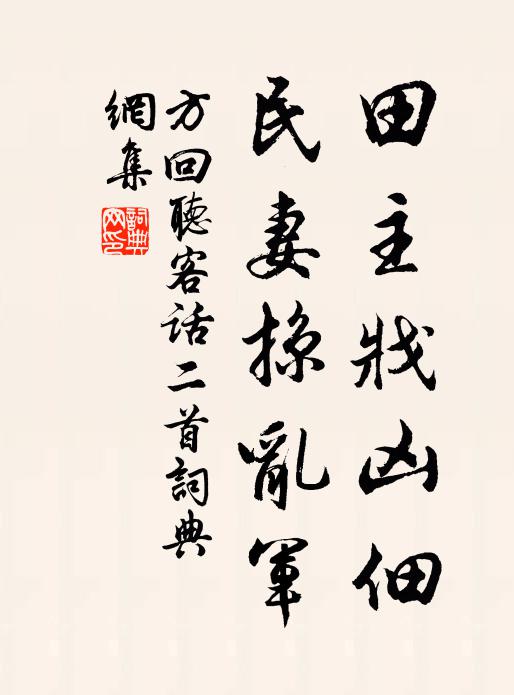 田主戕凶佃
民妻掠亂軍
方回聽客話二首詞典
網集
詞典
网印